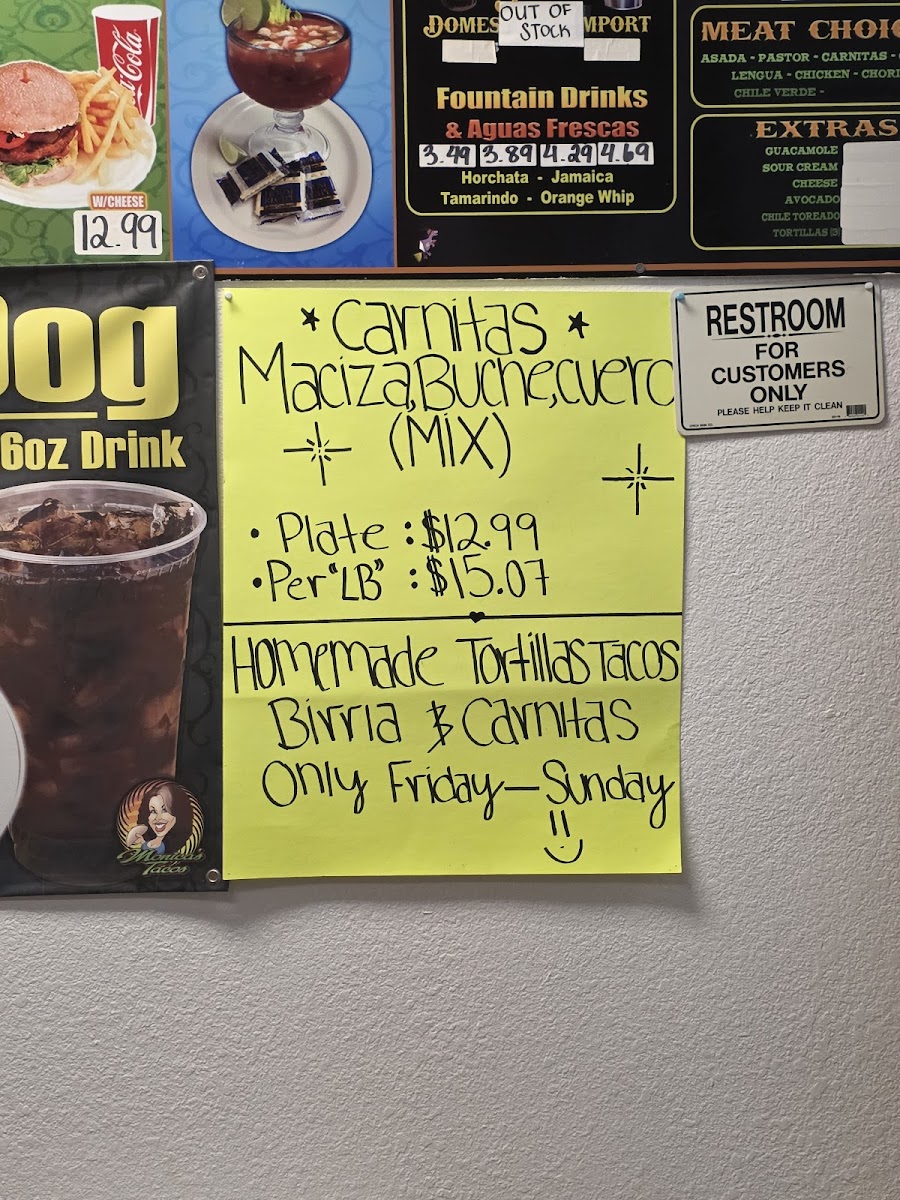 Coca-Cola
W/CHEESE
12.99
OUT OF
STOCK
Fountain Drinks
& Aguas Frescas
3.49 3.89 4.29 4.69
Horchata - Jamaica
Tamarindo - Orange Whip
MEAT CHOIC
ASADA - PASTOR - CARNITAS -
LENGUA - CHICKEN - CHORI
CHILE VERDE -
EXTRAS
GUACAMOLE
SOUR CREAM
CHEESE
AVOCADO
CHILE TOREADO
TORTILLAS (3)
Dog
6oz Drink
Monica's
Tacos
Carnitas
Maciza,Buche,cuero
(MIX)
• Plate : $12.99
• Per "LB" : $15.07
Homemade Tortillas Tacos
Birria & Carnitas
Only Friday—Sunday
RESTROOM
FOR
CUSTOMERS
ONLY
PLEASE HELP KEEP IT CLEAN